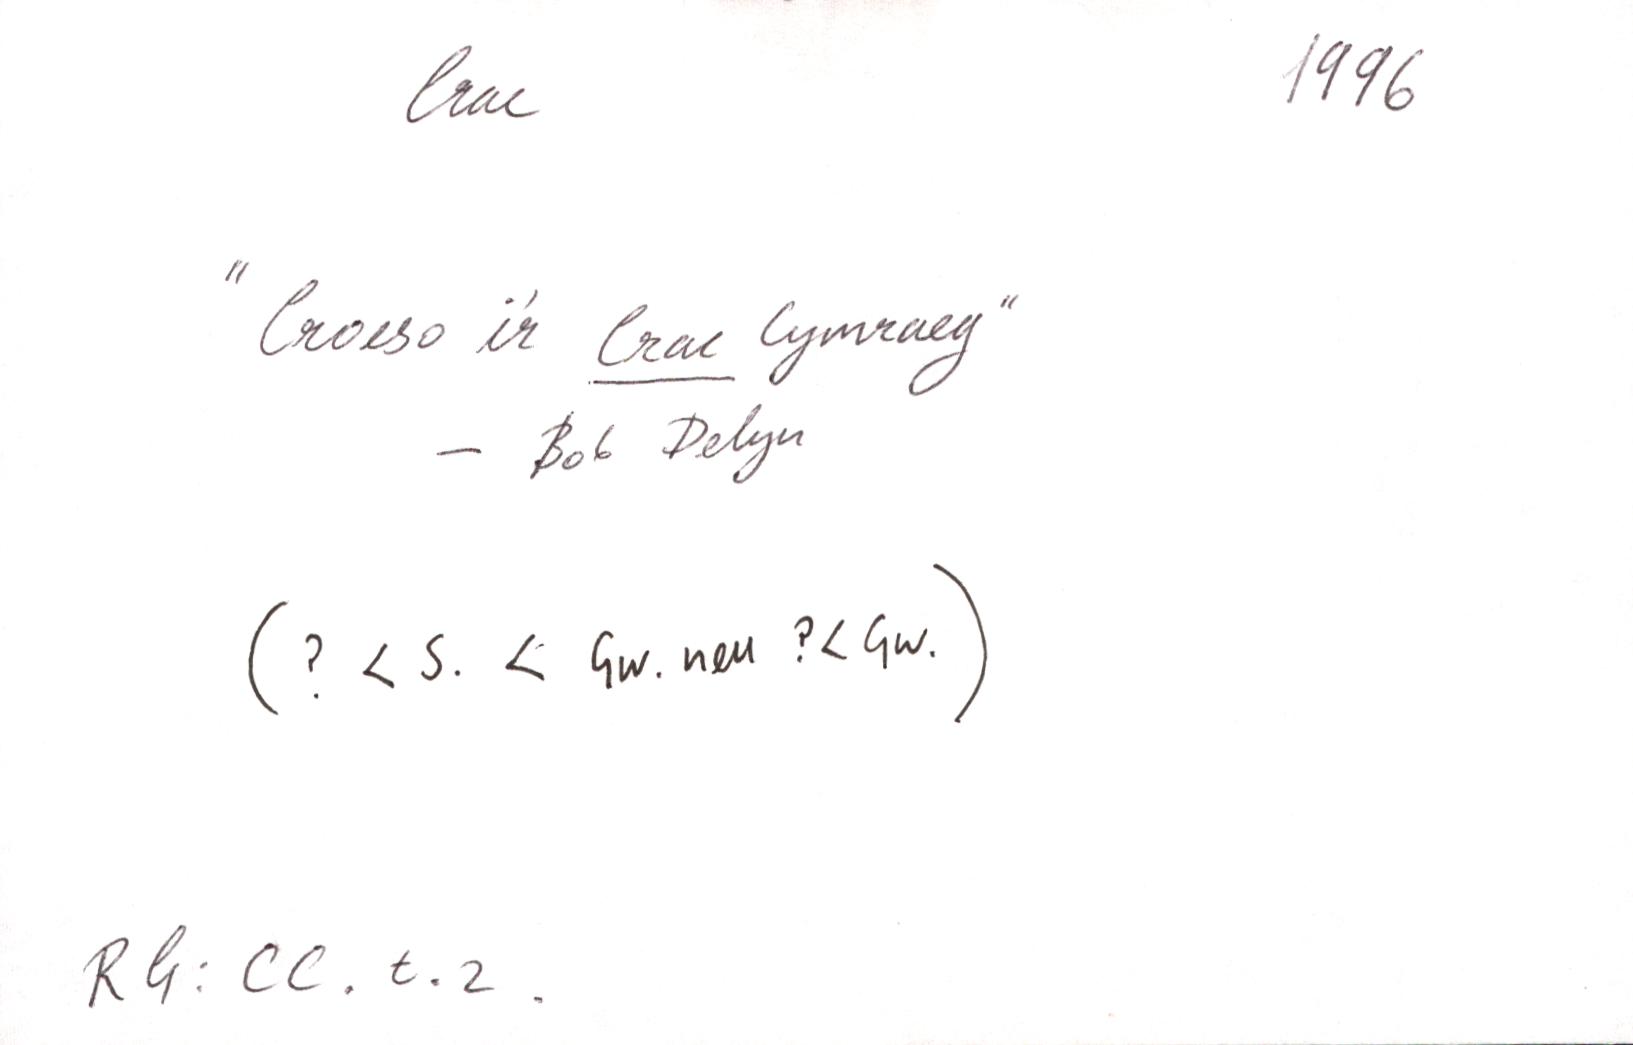 Crac 1996
"Croeso i'r Crac Cymraeg"
- Bob Delyn
(? < S. < Gw. neu ? < Gw.)
RG: CC. t. 2.